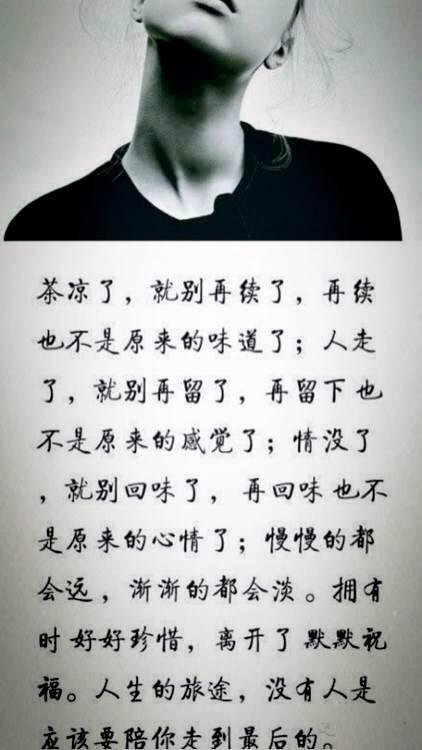 茶凉了，就别再续了，再续
也不是原来的味道了；人走
了，就别再留了，再留下也
不是原来的感觉了；情没了
，就别回味了，再回味也不
是原来的心情了；慢慢的都
会远，渐渐的都会淡。拥有
时好好珍惜，离开了默默祝
福。人生的旅途，没有人是
应该要陪你走到最后的。